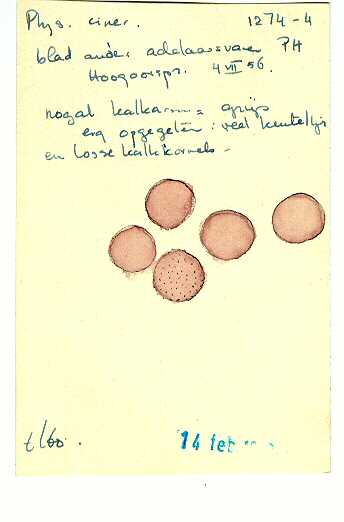 Phys. ciner. 1274-4
blad onder adelaarsvaren PH
Hoogoorspr. 4 VII 56.
nogal kalkarm = grijs
erg opgegeten : veel keuteltjes
en losse kalkkorrels -
t/60.
14 feb